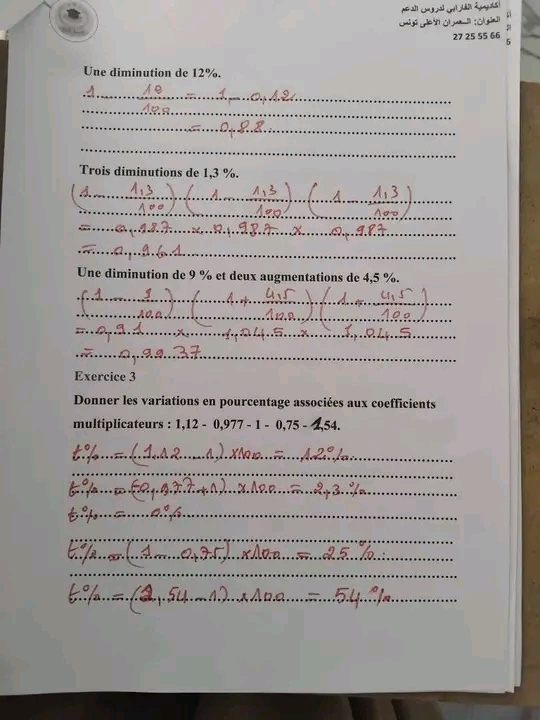 أكاديمية الفارابي لدروس الدعم
العنوان: السعمران الأعلى تونس
27 25 55 66
Une diminution de 12%.
1 - 12/100 = 1 - 0,12
= 0,88
Trois diminutions de 1,3 %.
(1 - 1,3/100) (1 - 1,3/100) (1 - 1,3/100)
= 0,987 x 0,987 x 0,987
= 0,961
Une diminution de 9 % et deux augmentations de 4,5 %.
(1 - 9/100) (1 + 4,5/100) (1 + 4,5/100)
= 0,91 x 1,045 x 1,045
= 0,9937
Exercice 3
Donner les variations en pourcentage associées aux coefficients
multiplicateurs : 1,12 - 0,977 - 1 - 0,75 - 1,54.
t% = (1,12 - 1) x100 = 12%
t% = (-0,977+1) x100 = 2,3%
t% = 0%
t% = (1 - 0,75) x100 = 25%
t% = (1,54 - 1) x100 = 54%